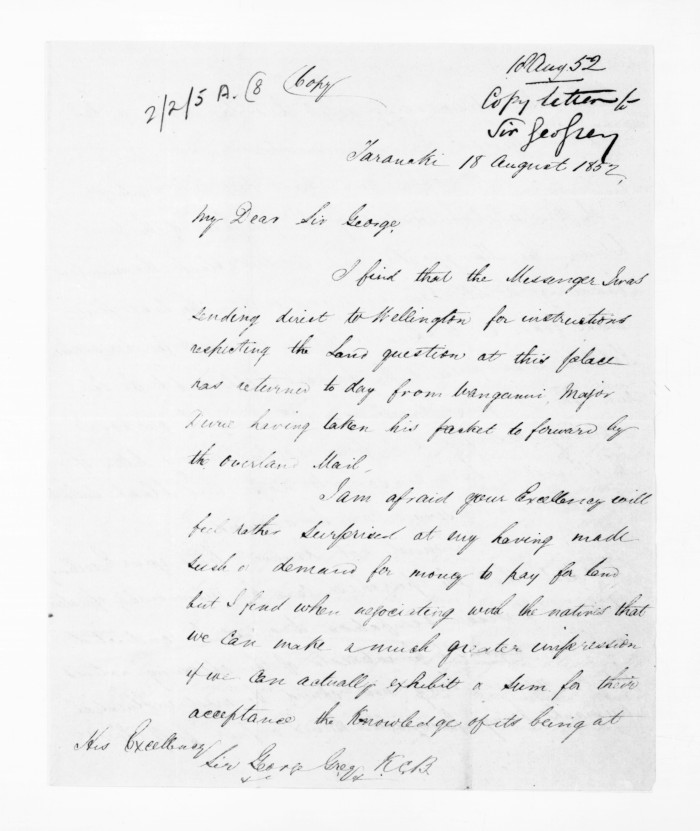 18 Aug 52
2/2/5 A. (8 Copy
Copy letter to
Sir Geo Grey
Taranaki 18 August 1852,
My Dear Sir George,
I find that the Messenger I was
sending direct to Wellington for instructions
respecting the Land question at this place
has returned to day from Wanganui, Major
Durie having taken his packet to forward by
the overland Mail.
I am afraid your Excellency will
feel rather surprised at my having made
such a demand for money to pay for land
but I find when negociating with the natives that
we can make a much greater impression
if we can actually exhibit a sum for their
acceptance the Knowledge of its being at
His Excellency
Sir George Grey K.C.B.